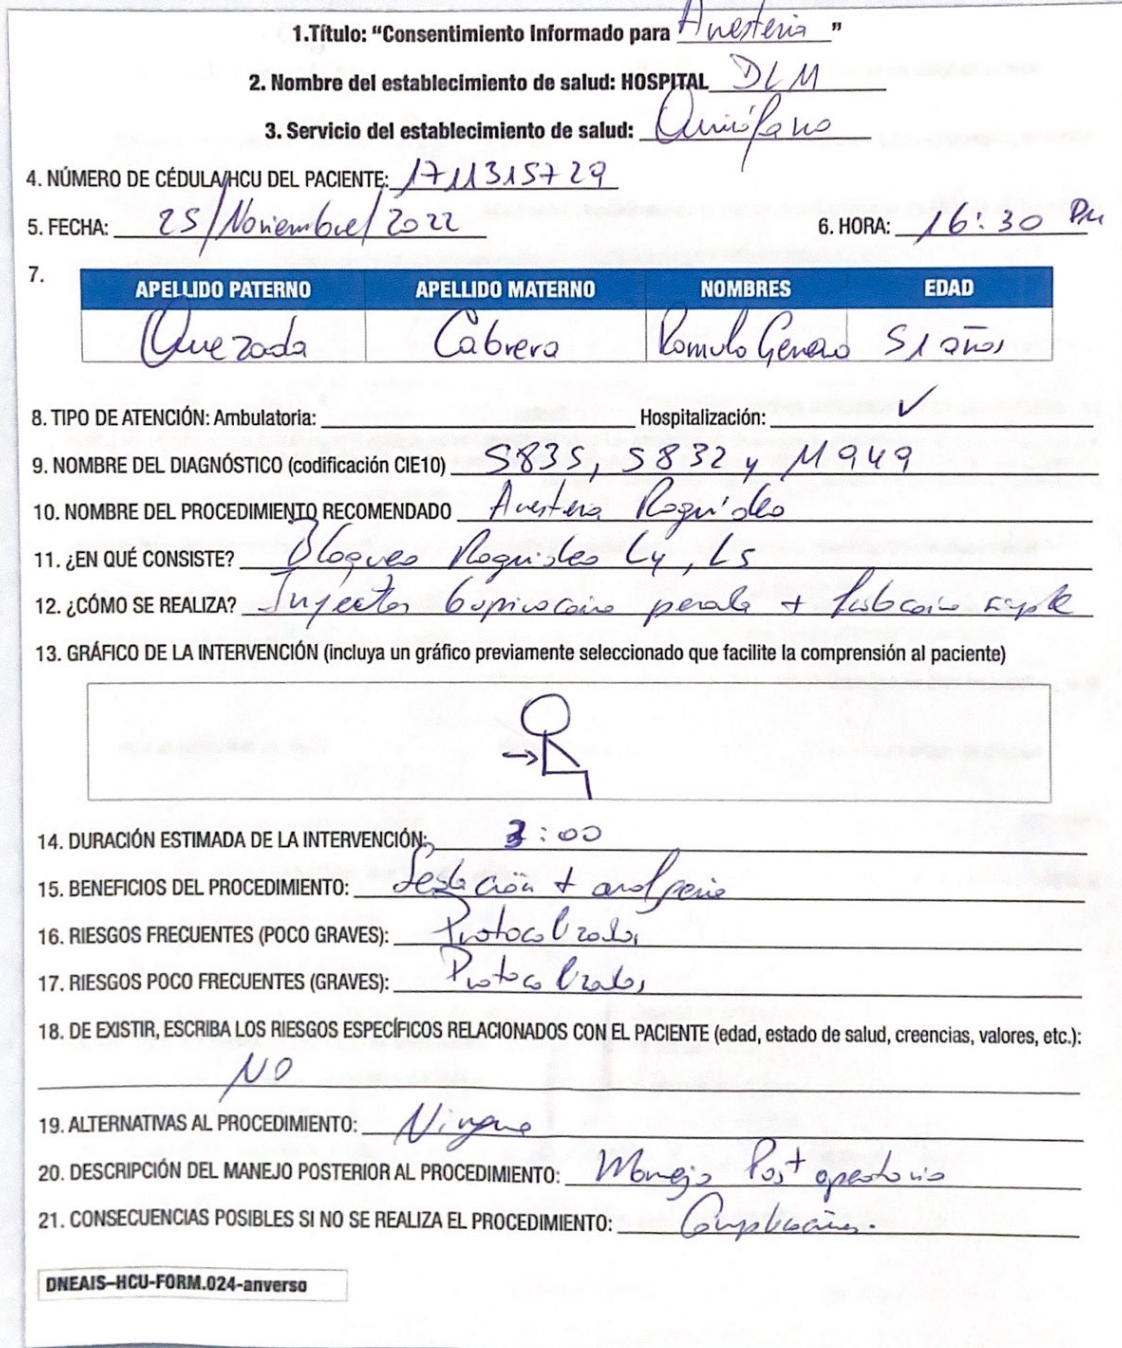 1.Título: “Consentimiento Informado para Anestesia ”
2. Nombre del establecimiento de salud: HOSPITAL DLM
3. Servicio del establecimiento de salud: Quirófano
4. NÚMERO DE CÉDULA/HCU DEL PACIENTE: 1711315729
5. FECHA: 25/Noviembre/2022 6. HORA: 16:30 PM
7.
APELLIDO PATERNO APELLIDO MATERNO NOMBRES EDAD
Quezada Cabrera Romulo Genaro 51 años
8. TIPO DE ATENCIÓN: Ambulatoria: Hospitalización: ✓
9. NOMBRE DEL DIAGNÓSTICO (codificación CIE10) S835, S832 y M949
10. NOMBRE DEL PROCEDIMIENTO RECOMENDADO Anestesia Raquidea
11. ¿EN QUÉ CONSISTE? Bloqueo Raquideo L4, L5
12. ¿CÓMO SE REALIZA? Inyectar bupivacaina pesada + simple
13. GRÁFICO DE LA INTERVENCIÓN (incluya un gráfico previamente seleccionado que facilite la comprensión al paciente)
14. DURACIÓN ESTIMADA DE LA INTERVENCIÓN: :00
15. BENEFICIOS DEL PROCEDIMIENTO: + analgesia
16. RIESGOS FRECUENTES (POCO GRAVES): Protocolizados
17. RIESGOS POCO FRECUENTES (GRAVES): Protocolizados
18. DE EXISTIR, ESCRIBA LOS RIESGOS ESPECÍFICOS RELACIONADOS CON EL PACIENTE (edad, estado de salud, creencias, valores, etc.):
NO
19. ALTERNATIVAS AL PROCEDIMIENTO: Ninguna
20. DESCRIPCIÓN DEL MANEJO POSTERIOR AL PROCEDIMIENTO: Manejo Post operatorio
21. CONSECUENCIAS POSIBLES SI NO SE REALIZA EL PROCEDIMIENTO: Complicaciones.
DNEAIS–HCU-FORM.024-anverso